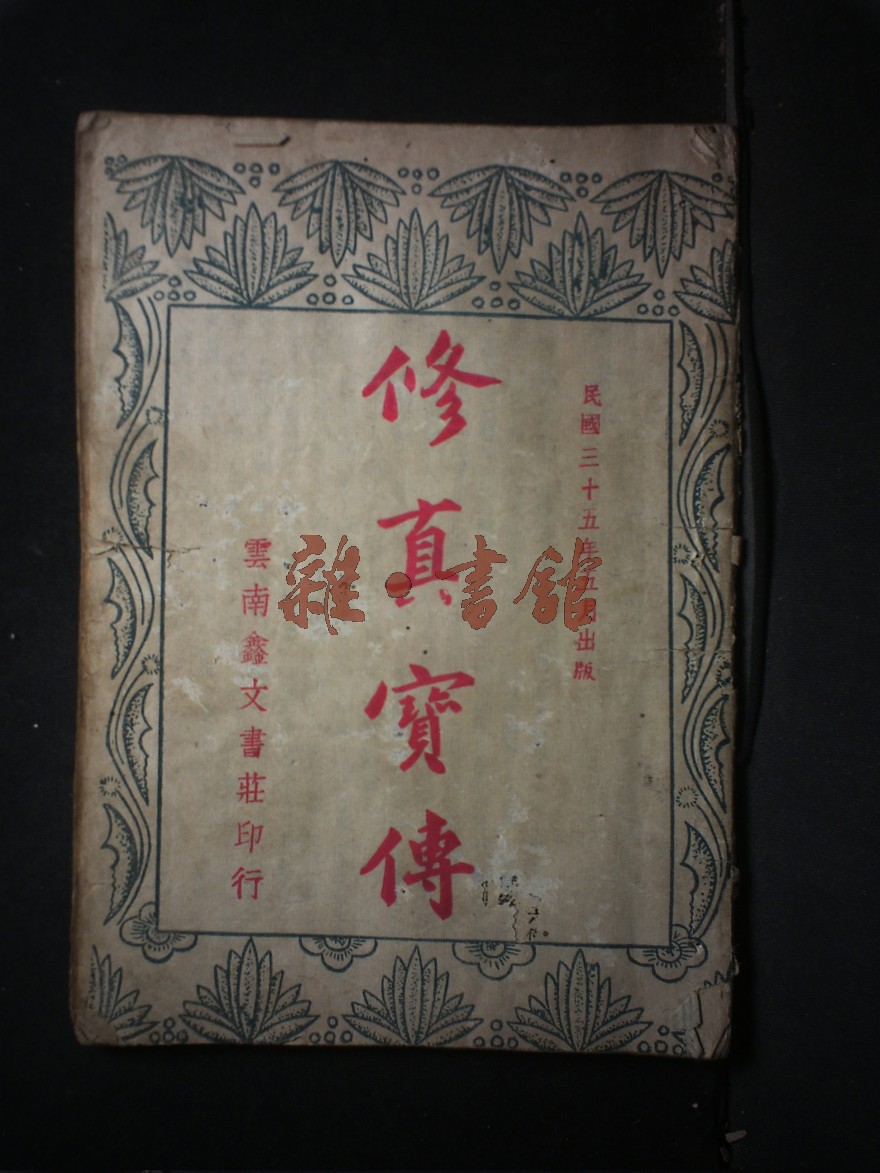 民國三十五年五月出版
修真寶傳
雲南鑫文書莊印行
雜·書舘